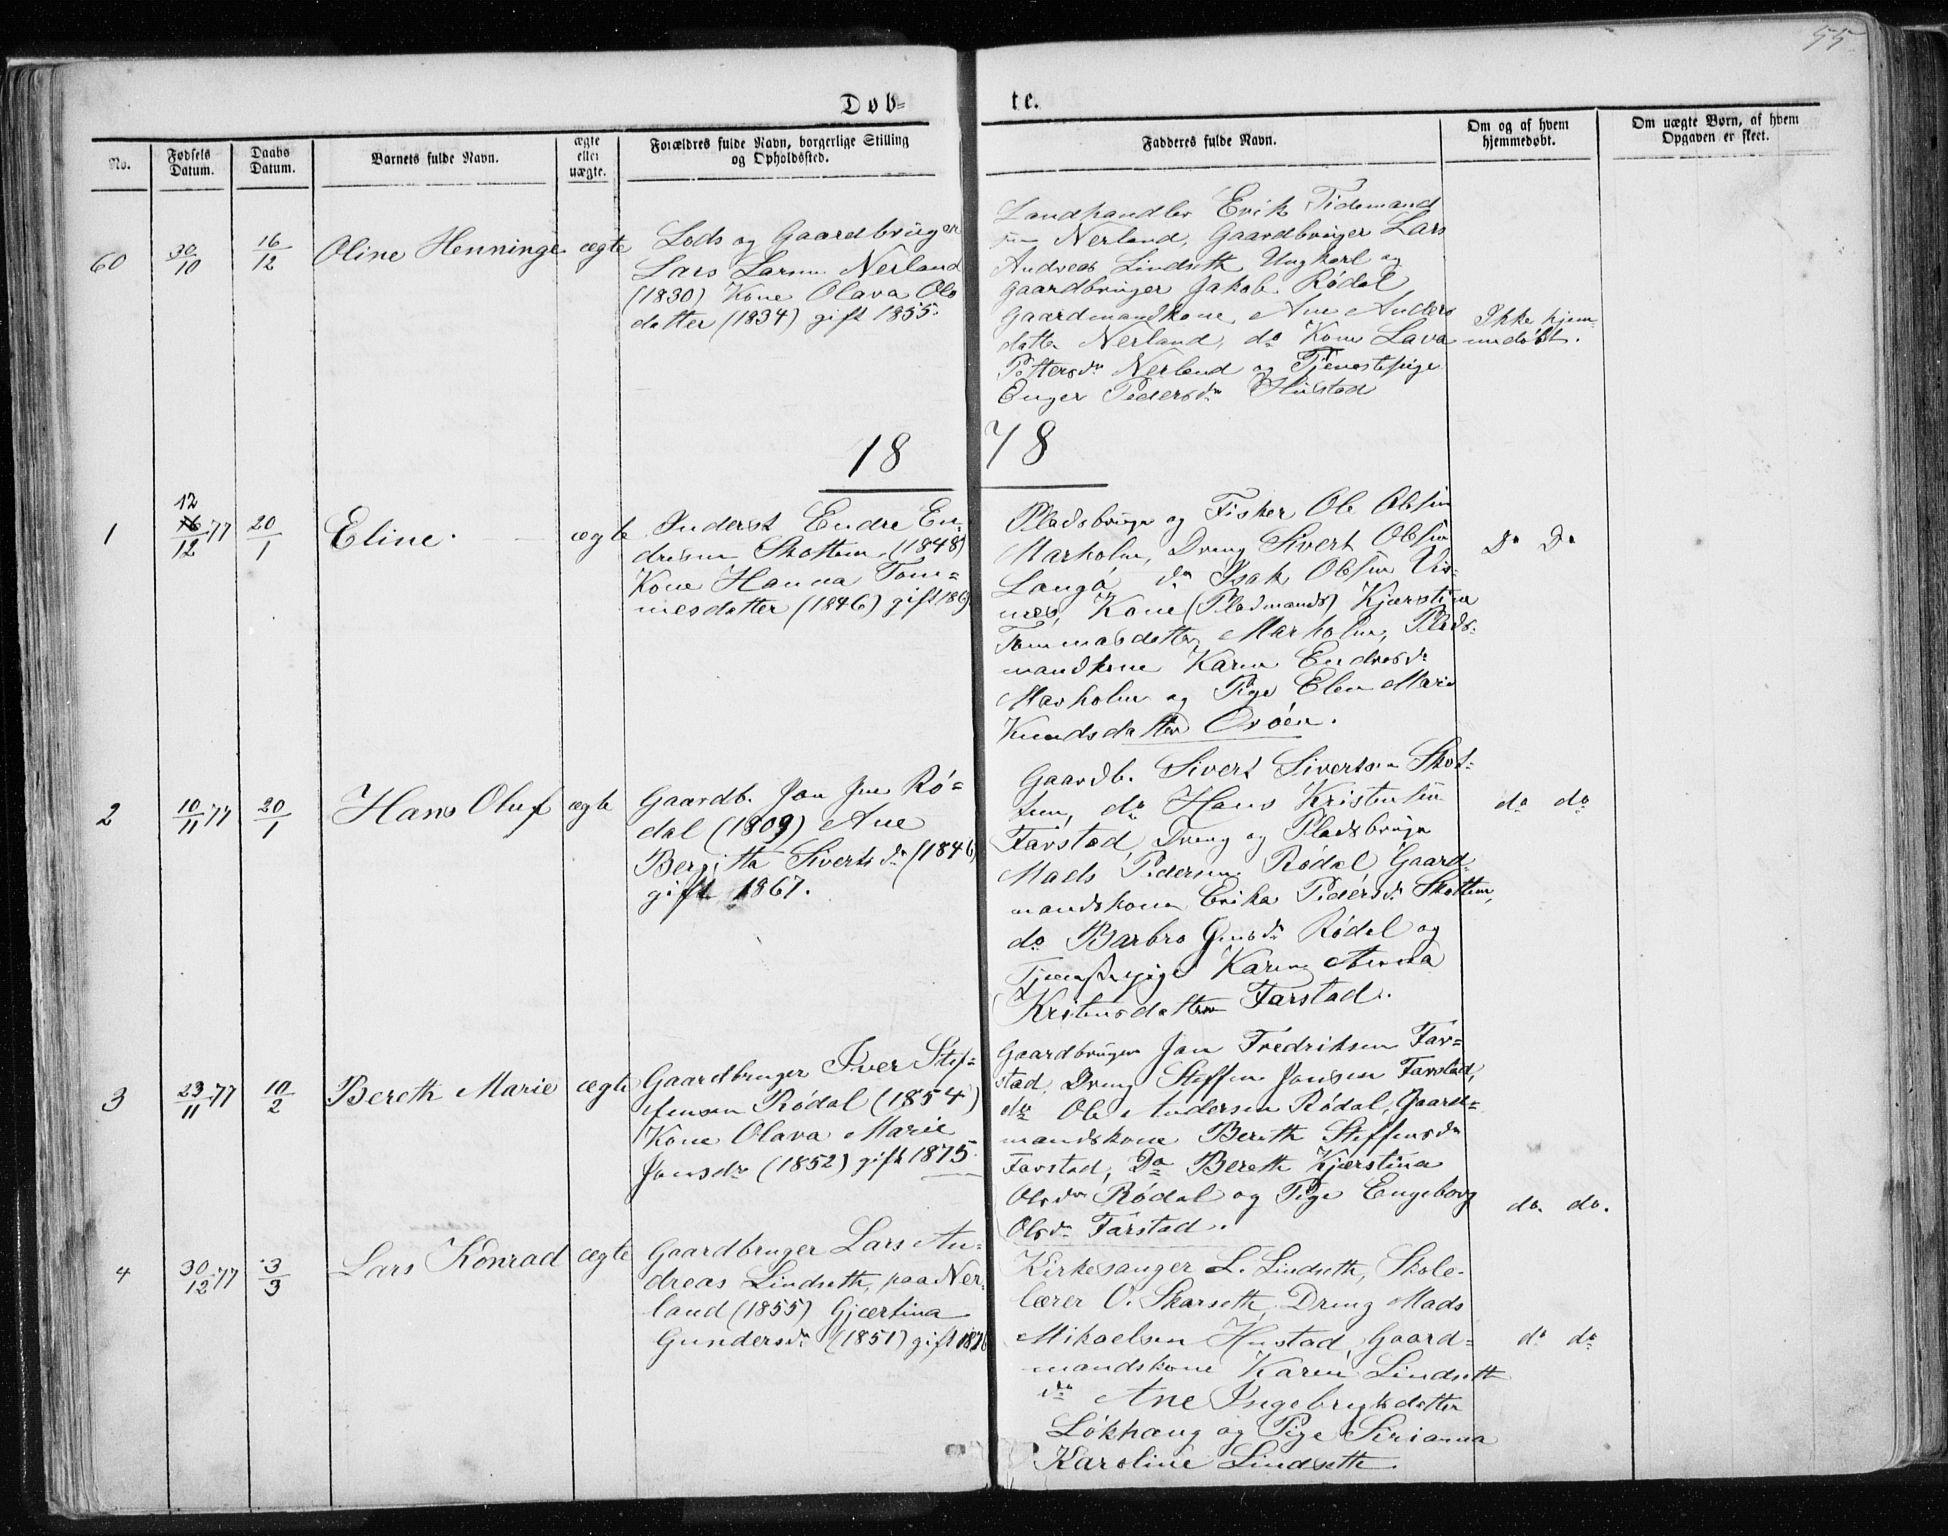 55
Døb=
te.
No.
Fødsels Datum.
Daabs Datum.
Barnets fulde Navn.
ægte eller uægte.
Forældres fulde Navn, borgerlige Stilling og Opholdssted.
Fadderes fulde Navn.
Om og af hvem hjemmedøbt.
Om uægte Børn, af hvem Opgaven er skeet.
60
30/10
16/12
Oline Henninge
ægte
Lods og Gaardbruger
Lars Larsen Nerland
(1830) Kone Olava Ols
datter (1834) gift 1855.
Landhandler Erik Tidemand
Nerland, Gaardbruger Lars
Andreas Lindseth Ungkarl og
Gaardbruger Jakob Rødal
Gaardmandkone Ane Anders
datter Nerland, do Kone Lava
Pettersdr Nerland og Tjenestepige
Enger Pedersdr Hustad
Ikke hjem-
medøbt.
18 78
1
12
16/12 77
20/1
Eline.
ægte
Inderst Endre En-
dresen Skottem (1848)
Kone Hanna Tom=
mesdatter (1846) gift 186
Pladsbruger og Fisker Ole Olsen
Marholm, Dreng Sivert Olsen
Langø do Isak Olsen Vis-
nes, Kone (Pladsmands) Kjerstine
Tommasdatter Marholm, Plads-
mandkone Karen Endresdr
Marholm og Pige Elen Marie
Knudsdatter Orøen.
Do Do
2
10/11 77
20/1
Hans Oluf
ægte
Gaardb. Jon Jens Rø=
dal (1809) Ane
Bergitta Sivertsdr (1846)
gift 1867.
Gaardb. Sivert Sivertsen Skot-
tem, do Hans Kristensen
Farstad, Dreng og Pladsbruger
Mads Pedersen Rødal Gaard-
mandskone Erika Pedersdr Skottem,
do Barbro Jensdr Rødal og
Tjenestepige Karen Anna
Kristensdatter Farstad.
do do
3
23/11 77
10/2
Bereth Marie
ægte
Gaardbruger Iver Stef-
fensen Rødal (1854)
Kone Olava Marie
Jonsdr (1852) gift 1875.
Gaardbruger Jon Fredriksen Far=
stad, Dreng Steffen Jonsen Farstad,
do Ole Andersen Rødal, Gaard=
mandskone Bereth Steffensdr
Farstad, Do Bereth Kjerstina
Olsdr Rødal og Pige Engeborg
Olsdr Farstad.
do. do.
4
30/12 77
3/3
Lars Konrad
ægte
Gaardbruger Lars An-
dreas Lindseth, paa Ner-
land (1855) Gjertina
Gundersdr (1851) gift 1876
Kirkesanger L. Lindseth, Skole-
lærer O. Skarseth, Dreng Mads
Mikaelsen Hustad, Gaard=
mandskone Karen Lindseth
do Ane Ingebrigtsdatter
Løkhaug og Pige Sirianna
Karoline Lindseth.
do do